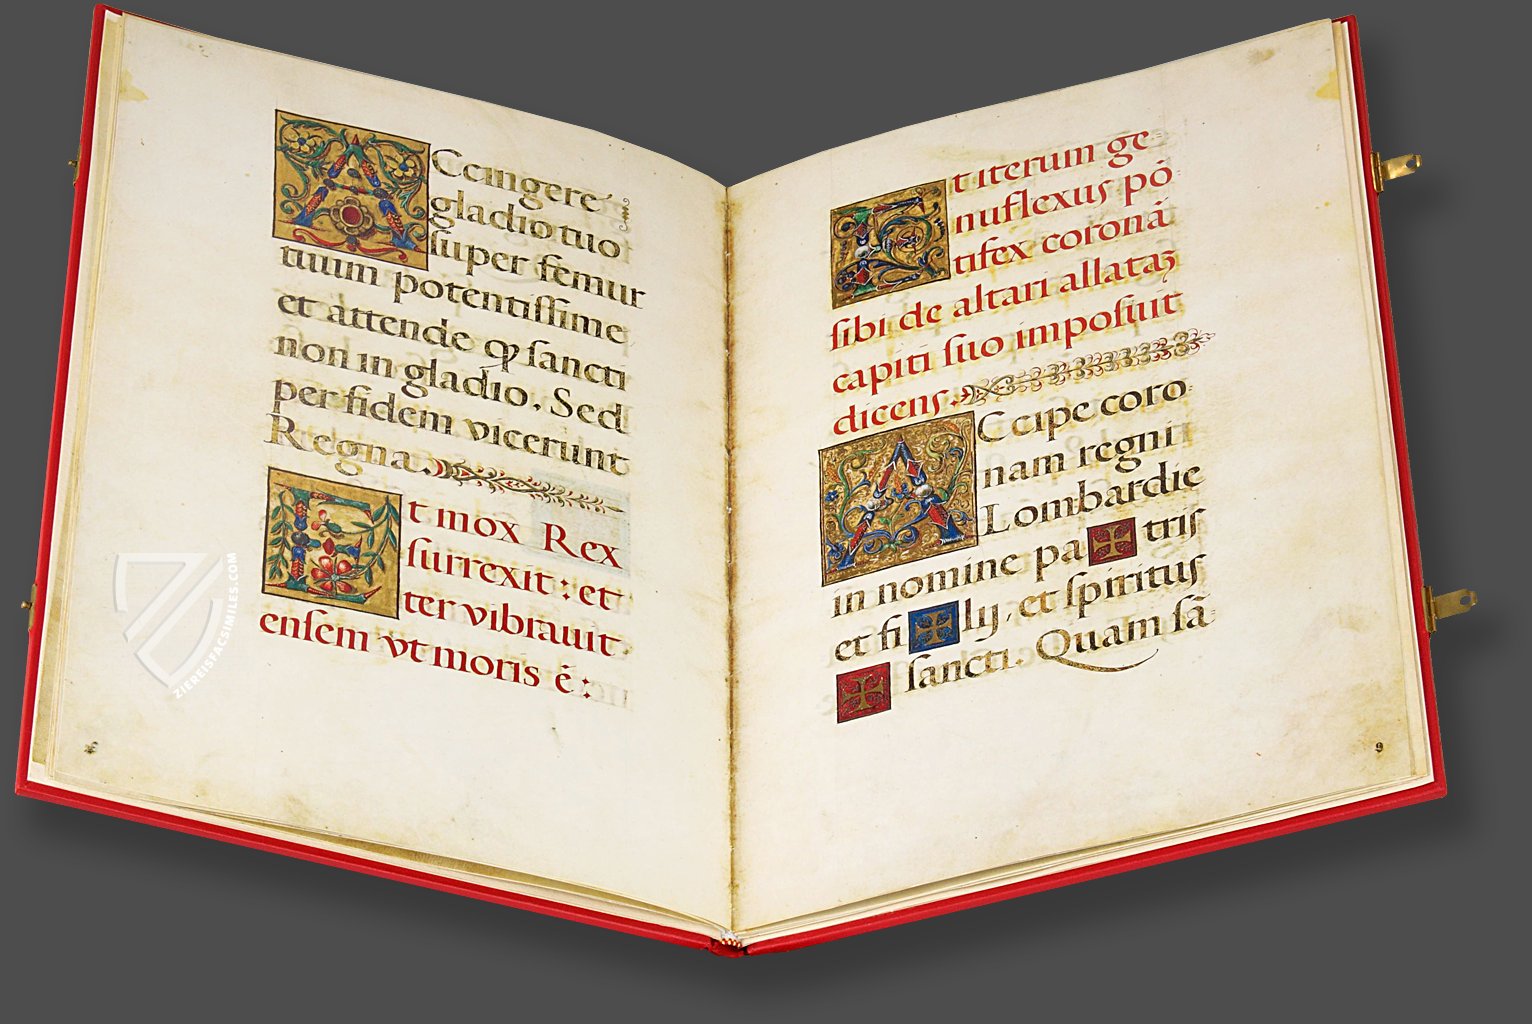 ACcingere
gladio tuo
super femur
tuum potentissime
et attende qɔ sancti
non in gladio. Sed
per fidem vicerunt
Regna.
Et mox Rex
surrexit: et
ter vibrauit
ensem vt moris ē:
Et iterum ge
nuflexus pō
tifex coronā
sibi de altari allataʒ
capiti suo imposuit
dicens.
ACcipe coro
nam regni
Lombardie
in nomine pa✠tris
et fi✠lij, et spiritus
✠sancti. Quam sā
9
ZIEREISFACSIMILES.COM